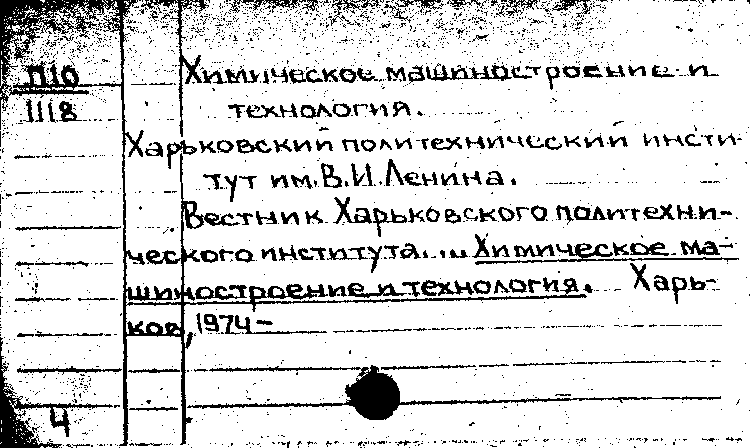 П10
1118
Химическое машиностроение и
технология.
Харьковский политехнический инсти-
тут им. В.И. Ленина.
Вестник Харьковского политехни-
ческого института... Химическое ма-
шиностроение и технология. Харь-
ков, 1974 –
4